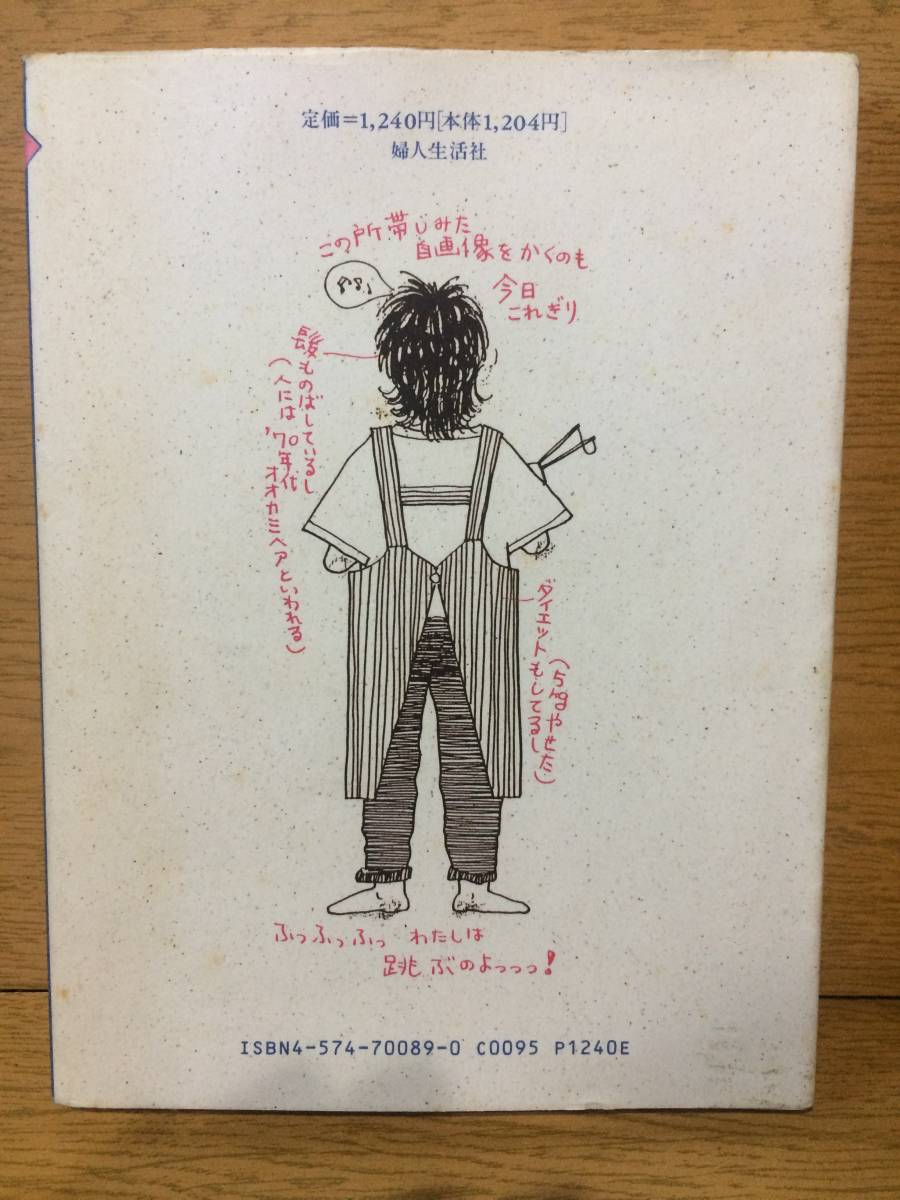 定価=1,240円[本体1,204円]
婦人生活社
この所帯じみた
自画像をかくのも
今日
これぎり
髪ものばしているし
(人には'70年代
オオカミヘアといわれる)
ダイエットもしてるし
(5kgやせた)
ふっふっふっ わたしは
跳ぶのよっっっ!
ISBN4-574-70089-0 C0095 P1240E